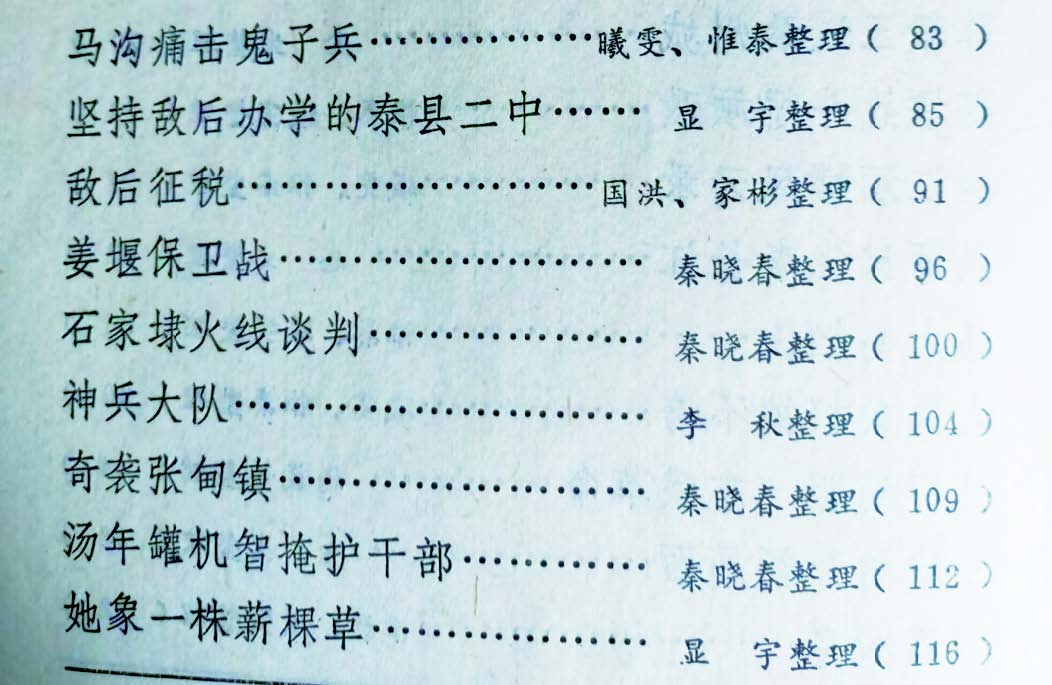 马沟痛击鬼子兵……………曦雯、惟泰整理( 83 )
坚持敌后办学的泰县二中…… 显 宇整理( 85 )
敌后征税………………………国洪、家彬整理( 91 )
姜堰保卫战……………………… 秦晓春整理( 96 )
石家埭火线谈判………………… 秦晓春整理( 100 )
神兵大队………………………… 李 秋整理( 104 )
奇袭张甸镇……………………… 秦晓春整理( 109 )
汤年罐机智掩护干部………… 秦晓春整理( 112 )
她象一株薪棵草………………… 显 宇整理( 116 )